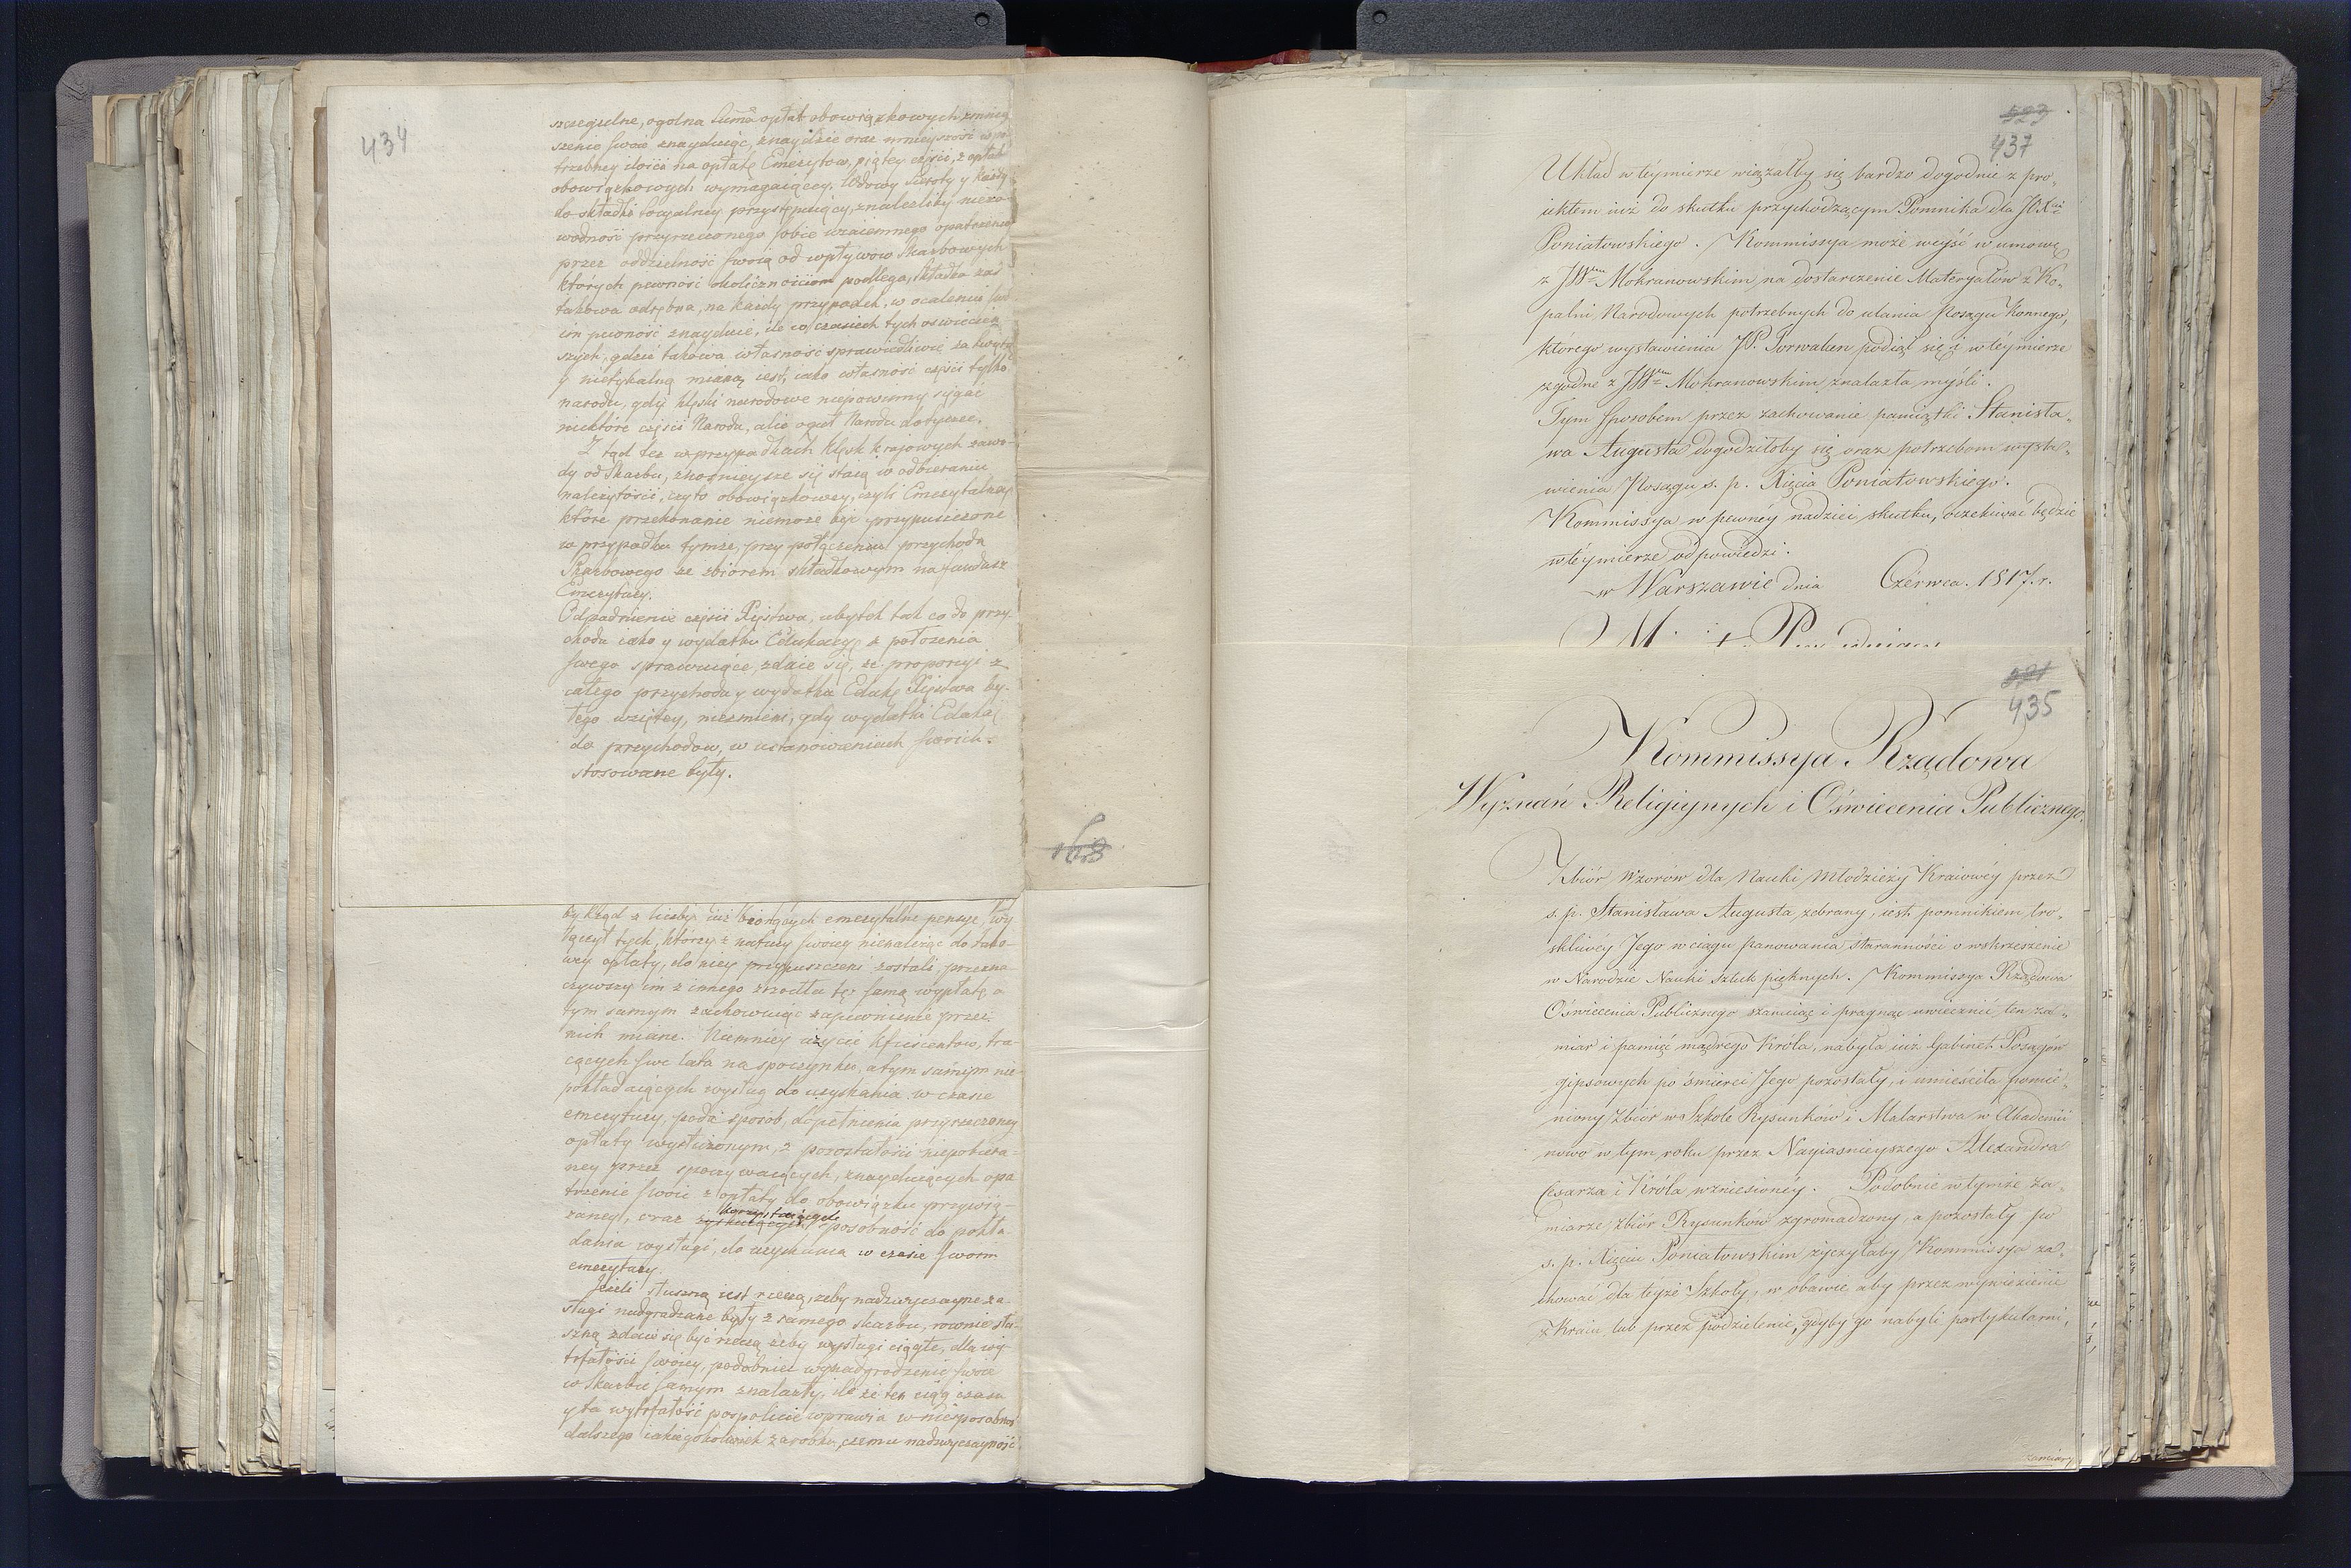 434
szczegulne, ogolna summa opłat obowiązkowych zmniey
szenie swoie znayduiąc, znaydzie oraz mnieyszość w po
trzebney ilości na opłatę Emerytow, piątey części, z opłat
obowiązkowych wymagaiącey. Wdowy Sieroty y każdy
do składki socyalney przystępuiący, znalezliby nieza
wodność przyrzeczonego sobie wzaiemnego opatrzenia
przez oddzielność swoią od wpływow skarbowych
których pewność okolicznościom podlega, składka zaś
takowa odrębna, na każdy przypadek, w ocaleniu swo
im pewność znayduie, ile w czasiech tych oświeceń
szych, gdzie takowa własność sprawiedliwie za świętą
y nietykalną mianą iest, iako własność części tylko
narodu, gdy klęski narodowe niepowinny sięgać
niektóre części Narodu, ale ogół Narodu dotyczeć.
Z tąd też w przypadkach klęsk krajowych zawo-
dy od Skarbu, znośnieysze się staią w odbieraniu
należytości, czyto obowiązkowey, czyli Emerytalney
które przekonanie niemoże być przypuszczone
w przypadku tymże, przy połączeniu przychodu
Skarbowego ze zbiorem składkowym na fundusz
Emerytury.
Odpadnienie części Xięstwa, ubytek tak co do przy-
chodu iako y wydatku Edukacyi z położenia
swego sprawuiące, zdaie się, że proporcyi z
całego przychodu y wydatku Eduk: Xięstwa by-
łego wziętey, niezmieni, gdy wydatki Edukac:
do przychodow, w ustanowieniach swoich
stosowane były.
168
by Rząd z liczby iuż biorących emerytalne pensye, wy
łączył tych, którzy z natury swoiey nienależąc do tako-
wey opłaty, do niey przypuszczeni zostali, przezna-
czywszy im z innego zrzodła tę samą wypłatę a
tym samym zachowuiąc zapewnienie przez
nich miane. Niemniey użycie kwiescentow, tra-
cących swe lata na spoczynku, a tym samym nie
pokładaiących wysług do uzyskania w czasie
emerytury, poda sposób, dopełnienia przyrzeczoney
opłaty wysłużonym, z pozostałości niepobiera-
ney przez spoczywaiących, znayduiących opa
trzenie swoie z opłaty do obowiązku przywią-
zaney, oraz korzystaiących sposobność do pokła-
dania wysługi, do uzyskania w czasie swoim
emerytury.
Jeżeli słuszną iest rzeczą, żeby nadzwyczayne za-
sługi nadgradzane były z samego skarbu, rownie słu-
szną zdaie się być rzeczą żeby wysługi ciągłe, dla wy-
trfałości swoiey, podobnież wynadgrodzenie swoie
w skarbie samym znalazły, ile że ten ciąg czasu
y ta wytrfałość pospolicie wprawia w niesposobność
dalszego iakiegokolwiek zarobku, czemu nadzwyczayność
523
437
Układ w téymierze wiązałby się bardzo dogodnie z pro„
iektem iuż do skutku przychodzącym Pomnika dla JOXcia
Poniatowskiego. Kommissya może weyść w umowę
z JWem Mokranowskim na dostarczenie Materyałów z Ko„
palni Narodowych potrzebnych do ulania Posągu Konnego,
którego wystawienia JP. Torwalsen podiął się i w téymierze
zgodne z JWem Mokranowskim znalazła myśli.
Tym sposobem przez zachowanie pamiątki Stanisła„
wa Augusta dogodziłoby się oraz potrzebom wysta„
wienia Posągu s. p. Xięcia Poniatowskiego.
Kommissya w pewnéy nadziei skutku, oczekiwać będzie
w téymierze odpowiedzi.
w Warszawie dnia Czérwca. 1817. r.
521
435
Kommissya Rządowa
Wyznań Religiynych i Oświecenia Publicznego.
Zbiór Wzorów dla Nauki Młodzieży Kraiowéy przez
s. p. Stanisława Augusta zebrany, iest pomnikiem tro„
skliwey Jego w ciągu panowania staranności o wskrzeszenie
w Narodzie Nauki sztuk pięknych. Kommissya Rządowa
Oświecenia Publicznego szanuiąc i pragnąc uwiecznić ten za„
miar i pamięć mądrego Króla, nabyła iuż Gabinet Posągów
gipsowych po śmierci Jego pozostały, i umieściła pomie„
niony Zbiór w Szkole Rysunków i Malarstwa w Akademii
nowo w tym roku przez Nayiaśnieyszego Alexandra
Cesarza i Króla wzniesionéy. Podobnie w tymże za„
miarze zbiór Rysunków zgromadzony, a pozostały po
s. p. Xięciu Poniatowskim życzyłaby Kommissya za„
chować dla teyże Szkoły, w obawie aby przez wywiezienie
z Kraiu lub przez podzielenie, gdyby go nabyli partykularni,
zamiary